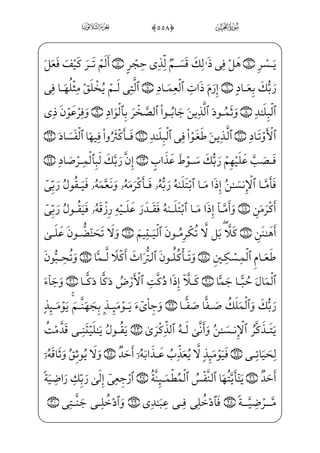 سُورَةُ الْفَجْرِ ﴿٥٥٨﴾ الجُزْءُ الثَّلَاثُونَ
يَسْرِ ۝٤ هَلْ فِى ذَٰلِكَ قَسَمٌ لِّذِى حِجْرٍ ۝٥ أَلَمْ تَرَ كَيْفَ فَعَلَ
رَبُّكَ بِعَادٍ ۝٦ إِرَمَ ذَاتِ ٱلْعِمَادِ ۝٧ ٱلَّتِى لَمْ يُخْلَقْ مِثْلُهَا فِى
ٱلْبِلَٰدِ ۝٨ وَثَمُودَ ٱلَّذِينَ جَابُوا۟ ٱلصَّخْرَ بِٱلْوَادِ ۝٩ وَفِرْعَوْنَ ذِى
ٱلْأَوْتَادِ ۝١٠ ٱلَّذِينَ طَغَوْا۟ فِى ٱلْبِلَٰدِ ۝١١ فَأَكْثَرُوا۟ فِيهَا ٱلْفَسَادَ
۝١٢ فَصَبَّ عَلَيْهِمْ رَبُّكَ سَوْطَ عَذَابٍ ۝١٣ إِنَّ رَبَّكَ لَبِٱلْمِرْصَادِ
۝١٤ فَأَمَّا ٱلْإِنسَٰنُ إِذَا مَا ٱبْتَلَىٰهُ رَبُّهُۥ فَأَكْرَمَهُۥ وَنَعَّمَهُۥ فَيَقُولُ رَبِّىٓ
أَكْرَمَنِ ۝١٥ وَأَمَّآ إِذَا مَا ٱبْتَلَىٰهُ فَقَدَرَ عَلَيْهِ رِزْقَهُۥ فَيَقُولُ رَبِّىٓ
أَهَٰنَنِ ۝١٦ كَلَّا ۖ بَل لَّا تُكْرِمُونَ ٱلْيَتِيمَ ۝١٧ وَلَا تَحَٰٓضُّونَ عَلَىٰ
طَعَامِ ٱلْمِسْكِينِ ۝١٨ وَتَأْكُلُونَ ٱلتُّرَاثَ أَكْلًا لَّمًّا ۝١٩ وَتُحِبُّونَ
ٱلْمَالَ حُبًّا جَمًّا ۝٢٠ كَلَّآ إِذَا دُكَّتِ ٱلْأَرْضُ دَكًّا دَكًّا ۝٢١ وَجَآءَ
رَبُّكَ وَٱلْمَلَكُ صَفًّا صَفًّا ۝٢٢ وَجِا۟ىٓءَ يَوْمَئِذٍۭ بِجَهَنَّمَ ۚ يَوْمَئِذٍ
يَتَذَكَّرُ ٱلْإِنسَٰنُ وَأَنَّىٰ لَهُ ٱلذِّكْرَىٰ ۝٢٣ يَقُولُ يَٰلَيْتَنِى قَدَّمْتُ
لِحَيَاتِى ۝٢٤ فَيَوْمَئِذٍ لَّا يُعَذِّبُ عَذَابَهُۥٓ أَحَدٌ ۝٢٥ وَلَا يُوثِقُ وَثَاقَهُۥٓ
أَحَدٌ ۝٢٦ يَٰٓأَيَّتُهَا ٱلنَّفْسُ ٱلْمُطْمَئِنَّةُ ۝٢٧ ٱرْجِعِىٓ إِلَىٰ رَبِّكِ رَاضِيَةً
مَّرْضِيَّةً ۝٢٨ فَٱدْخُلِى فِى عِبَٰدِى ۝٢٩ وَٱدْخُلِى جَنَّتِى ۝٣٠